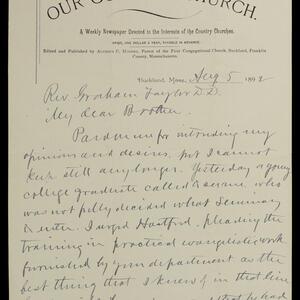 OUR COUNTRY CHURCH.
A Weekly Newspaper Devoted to the Interests of the Country Churches.
Edited and Published by Pastor of the First Congregational Church, Buckland, Franklin
County, Massachusetts.
Buckland, Mass., Aug 5 1892
Rev. Graham Taylor D.D.
My dear Brother.
Pardon me for intruding my
opinions and desires, but I cannot
keep still any longer. Yesterday a young
college graduate called & was one, who
was not fully decided what Seminary
to enter. I urged Hartford, pleading the
training in practical evangelistic work
furnished by your department as the
best thing that I knew of in that line